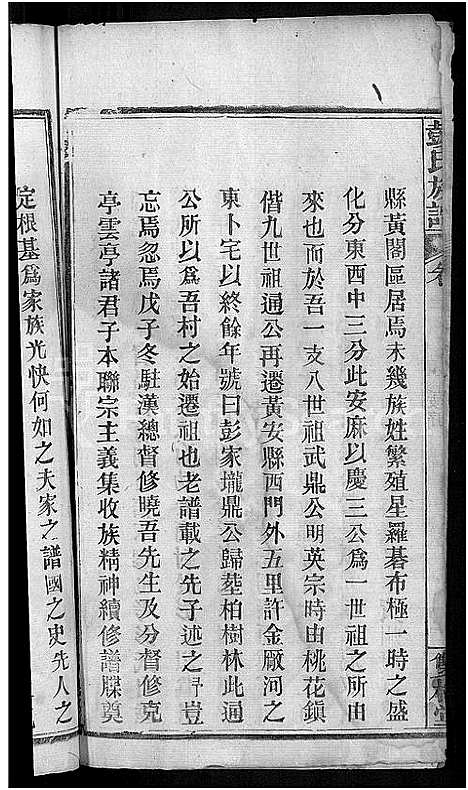 彭氏族譜
縣黃閣區居焉未幾族姓繁殖星羅碁布極一時之盛
化分東西中三分此安麻以慶三公爲一世祖之所由
來也而於吾一支八世祖武鼎公明英宗時由桃花鎮
偕九世祖通公再遷黃安縣西門外五里許金廠河之
東卜宅以終餘年號曰彭家壠鼎公歸塟柏樹林此通
公所以爲吾村之始遷祖也老譜載之先子述之予豈
忘焉忽焉戊子冬駐漢總督修曉吾先生及分督修克
亭雲亭諸君子本聯宗主義集收族精神續修譜牒奠
定根基爲家族光快何如之夫家之譜國之史先人之